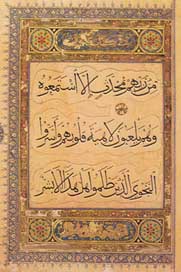 من ربهم محدث الا استمعوه
وهم يلعبون لاهية قلوبهم وأسروا
النجوى الذين ظلموا هل هذا الا بشر